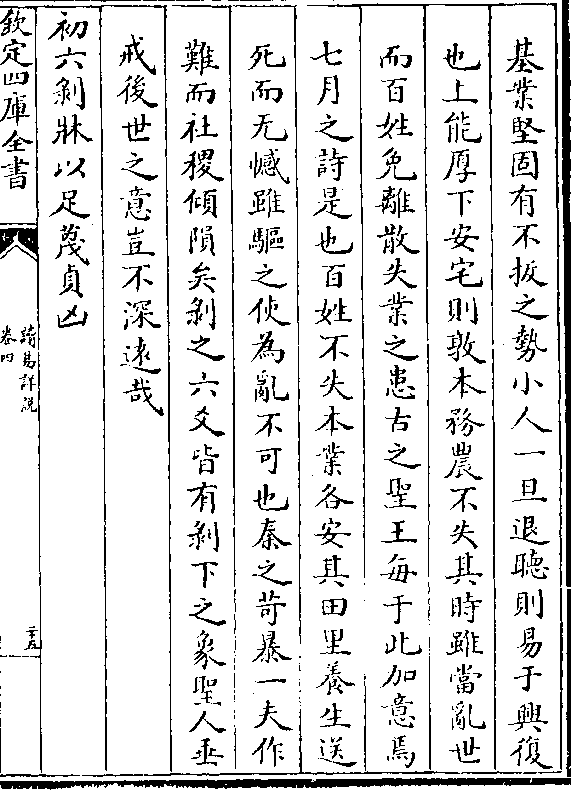 基業堅固有不拔之勢小人一旦退聽則易于興復
也上能厚下安宅則敦本務農不失其時雖當亂世
而百姓免離散失業之患古之聖王每于此加意焉
七月之詩是也百姓不失本業各安其田里養生送
死而无憾雖驅之使為亂不可也秦之苛暴一夫作
難而社稷傾隕矣剝之六爻皆有剝下之象聖人垂
戒後世之意豈不深遠哉
初六剝牀以足蔑貞凶
欽定四庫全書
讀易詳說
卷四
二十五